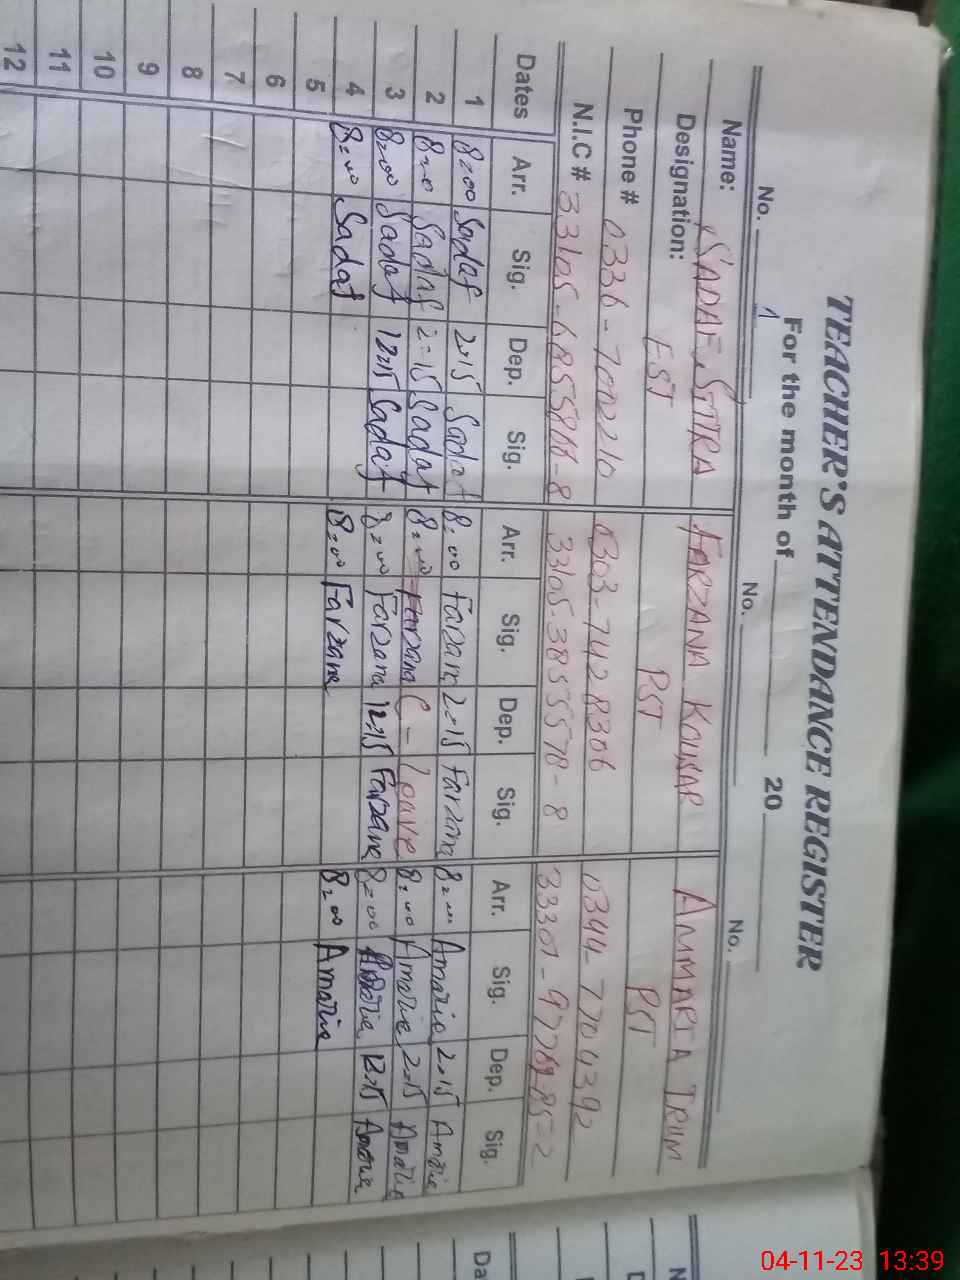 TEACHER'S ATTENDANCE REGISTER
For the month of 20
No. No. No.
Name: SADAF SITRA FARZANA KOUSAR AMMARIA
Designation: EST PST PST
Phone # 0336-7002210 0303-7428306 0344-7704392
N.I.C #
Dates Arr. Sig. Dep. Sig. Arr. Sig. Dep. Sig. Arr. Sig. Dep. Sig.
1 8=00 Sadaf 2=15 Sadaf 8=00 Farzana 2=15 Farzana 8=00 Amaria 2=15 Amaria
2 8=00 Sadaf 2=15 Sadaf 8=00 Farzana C-leave 8=00 Amaria 2=15 Amaria
3 8=00 Sadaf 12=15 Sadaf 8=00 Farzana 12=15 Farzana 8=00 12=15 Amaria
4 8=00 Sadaf 8=00 Farzana 8=00 Amaria
5
6
7
8
9
10
11
12
Da
04-11-23 13:39